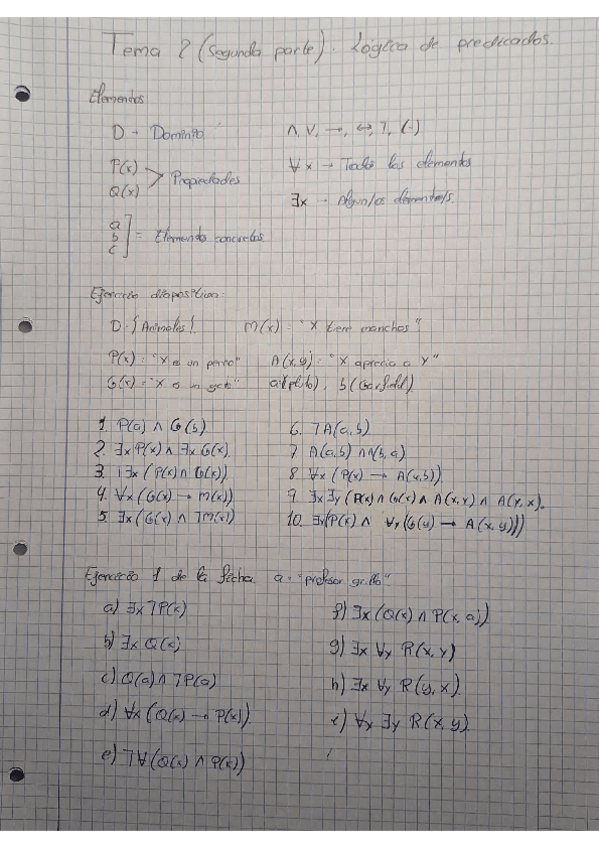 Tema 2 (segunda parte). Lógica de predicados.
Elementos
D → Dominio
P(x)
Q(x) > Propiedades
a
b
c ] = Elementos concretos
∧, ∨, →, ↔, ¬, (-)
∀x → Todos los elementos
∃x → Algún/os elemento/s.
Ejercicio diapositiva:
D = {Animales}. M(x) = "X tiene manchas"
P(x) = "X es un perro" A(x,y) = "X aprecia a Y"
G(x) = "X es un gato" b (Garfield).
1. P(a) ∧ G(b)
2. ∃x P(x) ∧ ∃x G(x)
3. ¬∃x (P(x) ∧ G(x))
4. ∀x (G(x) → M(x))
5. ∃x (G(x) ∧ ¬M(x))
6. ¬A(a,b)
7 A(a,b) ∧ A(b,a)
8. ∀x (P(x) → A(x,b))
9 ∃x ∃y (P(x) ∧ G(x) ∧ A(x,y) ∧ A(y,x).
10. ∃x(P(x) ∧ ∀y(G(y) → A(x,y)))
Ejercicio 1 de la ficha. a = "profesor grillo"
a) ∃x ¬P(x)
b) ∃x Q(x)
c) Q(a) ∧ ¬P(a)
d) ∀x (Q(x) → P(x))
e) ¬∀(Q(x) ∧ P(x))
f) ∃x (Q(x) ∧ P(x,a))
g) ∃x ∀y R(x,y)
h) ∃x ∀y R(y,x)
i) ∀x ∃y R(x,y)